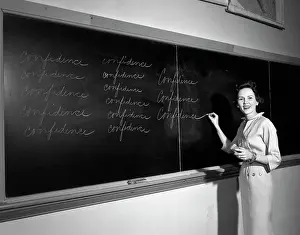 confidence confidence
confidence confidence Confidence
confidence confidence Confidence
confidence confidence Confidence
confidence confidence Confidence
confidence confidence